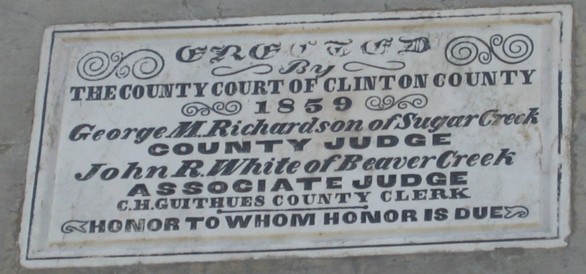 ERECTED
By
THE COUNTY COURT OF CLINTON COUNTY
1859
George M. Richardson of Sugar Creek
COUNTY JUDGE
John R. White of Beaver Creek
ASSOCIATE JUDGE
C.H. GUITHUES COUNTY CLERK
HONOR TO WHOM HONOR IS DUE